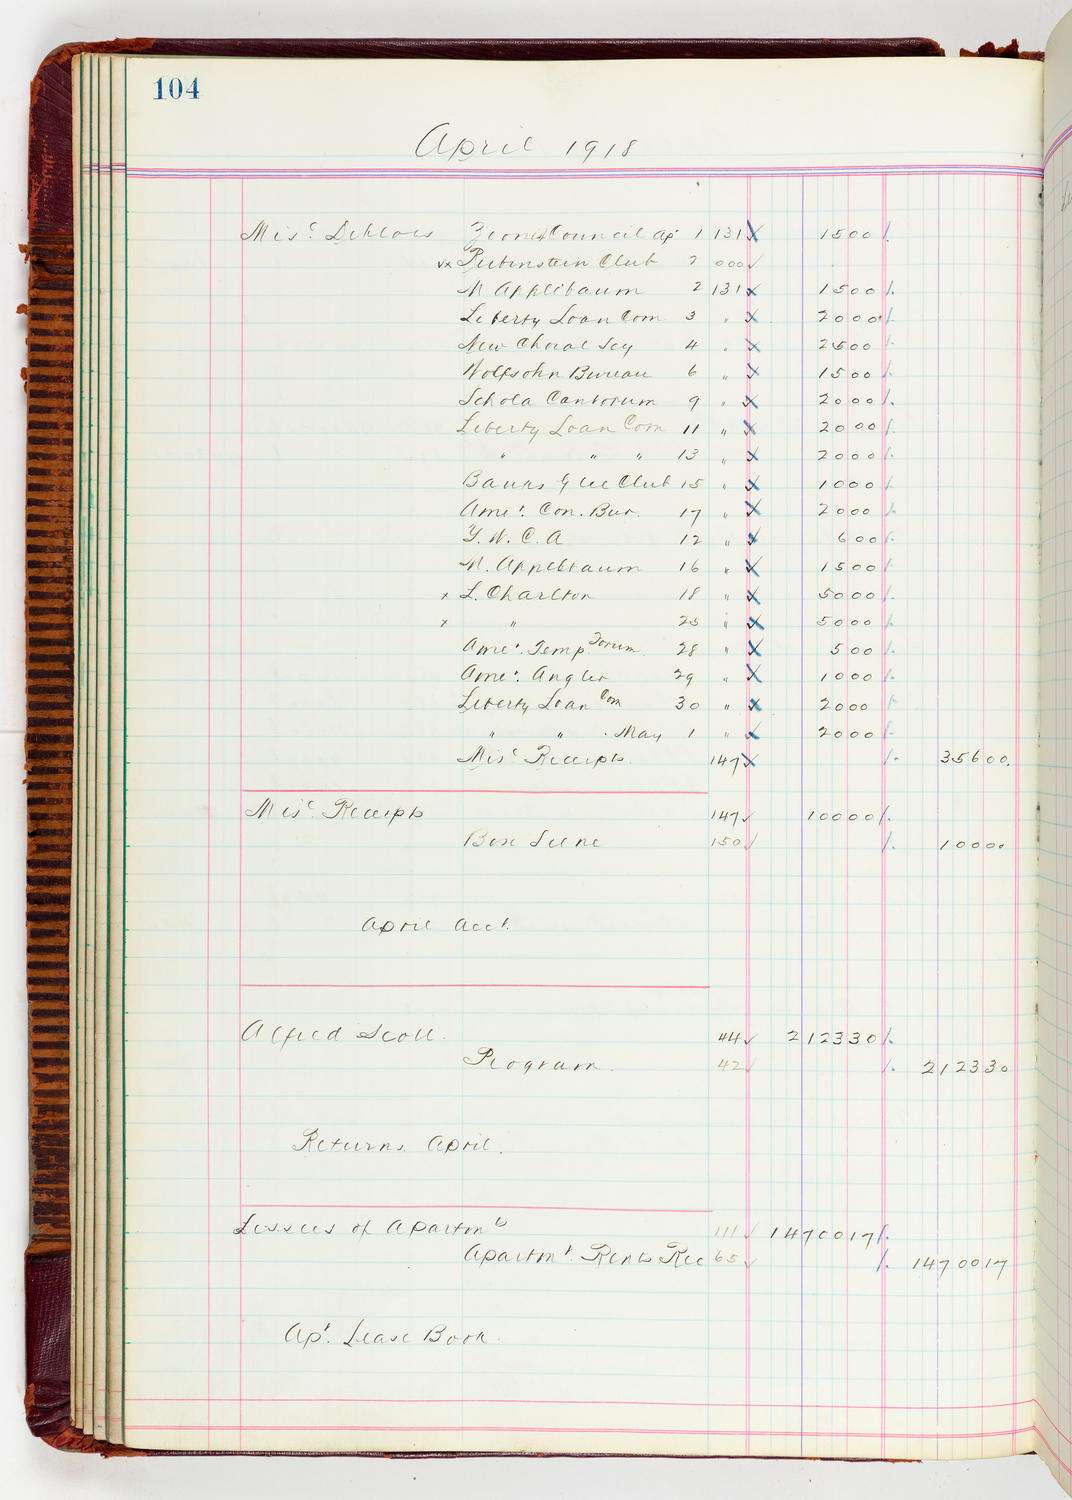 104
April 1918
Misc. Debtors Zionist Council Ap. 1 131 1500
Rubinstein Club 2 000
M Applebaum 2 131 1500
Liberty Loan Com 3 " 2000
New Choral Scy 4 " 2500
Wolfsohn Bureau 6 " 1500
Schola Cantorum 9 " 2000
Liberty Loan Com 11 " 2000
" " " 13 " 2000
Glee Club 15 " 1000
Amer. Con. Bur. 17 " 2000
Y. W. C. A 12 " 600
M. Applebaum 16 " 1500
x L. Charlton 18 " 5000
x " 25 " 5000
Amer. Temp. Forum 28 " 500
Amer. Angler 29 " 1000
Liberty Loan Com 30 " 2000
" " . May 1 " 2000
Misc Receipts 147 35600
Misc Receipts 147 10000
Box 150 10000
April Acct.
Alfred Scott. 44 212330
Program. 42 212330
Returns April.
Lessees of Apartmts 111 1470017
Apartmt. Rents Rec 65 1470017
Apt. Lease Book.